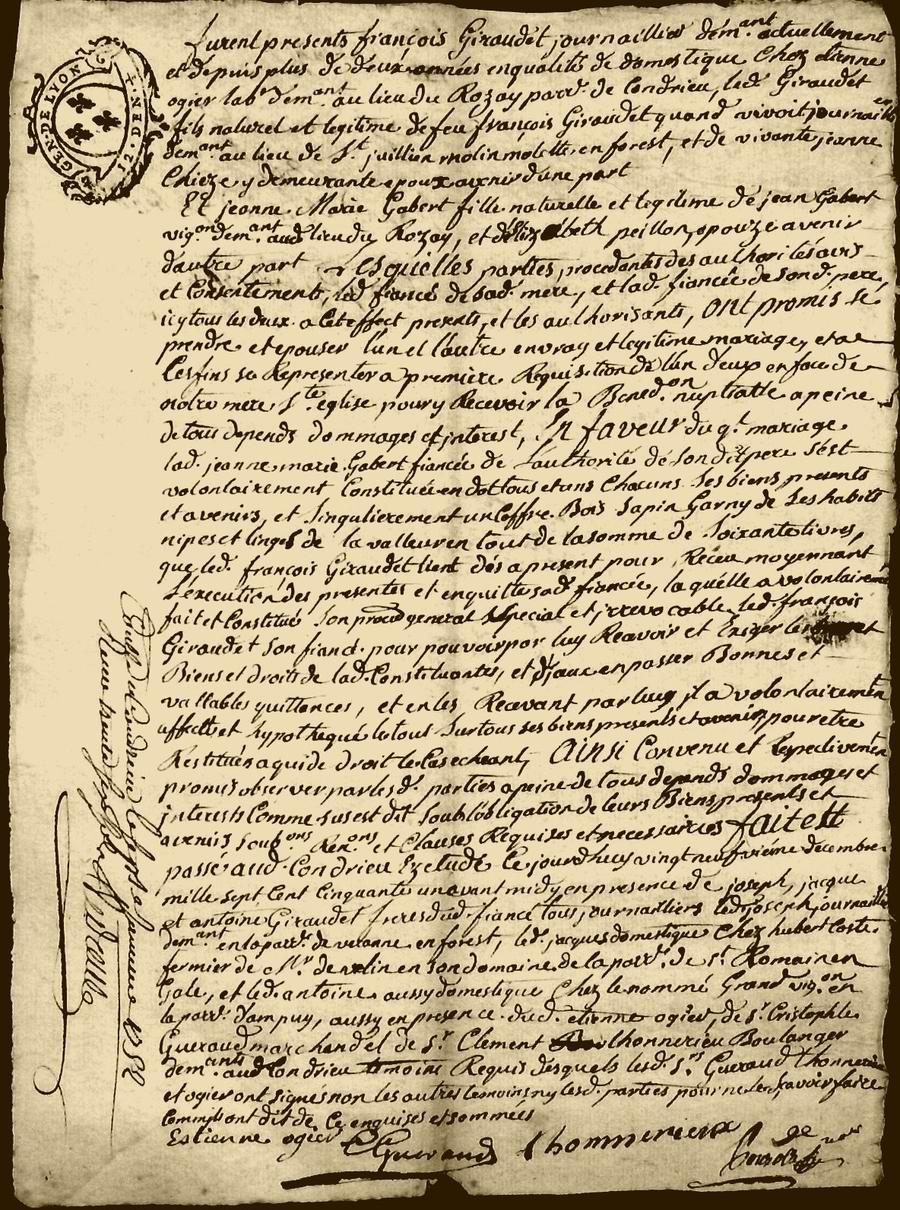 GEN·DE LYON
12·DEN·
furent presents françois Giraudet journaillier dem.ant actuellement
et depuis plus de deux années en qualité de domestique Chez etienne
ogier lab.r dem.ant au lieu du Rozay parr.e de Condrieu, led. Giraudet
fils naturel et legitime de feu françois Giraudet quand vivoit journaillier
dem.ant au lieu de S.t juillien molin molette en forest, et de vivante jeanne
Chieze y demeurante epoux avenir d'une part
Et jeanne Marie Gabert fille naturelle et legitime de jean Gabert
vig.on dem.ant aud. lieu du Rozay, et d'elizabeth peillon, epouze avenir
d'autre part Lesquelles parties, procedants des authorités avis
et Consentements, led. fiancé de sad. mere, et lad. fiancée de sond. pere,
icy tous les deux a Cet effect presents, et les authorisants, ont promis se
prendre et epouser l'un et l'autre en vray et legitime mariage, et a
Ces fins se Representer a premiere Requisition de l'un deux en face de
notre mere S.te eglise pour y Recevoir la Bened.on nuptialle a peine
de tous depends dommages et jnterest, En faveur du q.t mariage
lad. jeanne marie Gabert fiancée de L'authorité de Son dit pere s'est
volontairement Constituée en dot tous et uns Chacuns Ses biens presents
et avenirs, et Singulierement un Coffre Bois Sapin Garny de Ses habits
nipes et linges de la valleur en tout de la somme de Soixante livres,
que led. françois Giraudet tient dés a present pour Réceu moyennant
L'execution des presentes et en quitte sad. fiancée, la quelle a volontairement
fait et Constitué Son procu.r general Special et jrrevocable led. françois
Giraudet Son fiancé pour pouvoir par luy Recevoir et Exiger les
Biens et droits de lad. Constituante, et d'jceux en passer Bonnes et
vallables quittances, et en les Recevant par luy il a volontairement
affecté et hypothequé le tout Sur tous ses biens presents et avenirs, pour etre
Restitués a qui de droit le Cas echeant, Ainsi Convenu et Respectivement
promis observer par lesd. parties a peine de tous depends dommages et
jnterests Comme sus est dit Soub l'obligation de leurs Biens presents et
avenirs Soub.ons Ren.ons et Clauses Requises et necessaires fait et
passé aud. Condrieu Etude Le jourd'huy vingt neufvieme decembre
mille sept Cent Cinquante un avant midy en presence de joseph, jacque
et antoine Giraudet freres dud. fiancé tous journailliers led. joseph journaillier
dem.ant en la parr.e de veranne en forest, led. jacques domestique Chez hubert Coste
fermier de M.r de velin en son domaine de la parr.e de S.t Romain en
Gale, et led. antoine aussy domestique Chez le nommé Grand vig.on en
la parr.e d'ampuy, aussy en presence dud. etienne ogier, de S.r Cristophle
Gueraud marchand et de S.r Clement Lhonnerieu Boulanger
dem.ants aud. Condrieu temoins Requis desquels lesd. S.rs Gueraud Lhonnerieux
et ogier ont signé non les autres temoins ny lesd. parties pour ne le Scavoir faire
Comme ont dit de Ce enquises et sommées
Estienne ogier CGueraud Lhommerieux